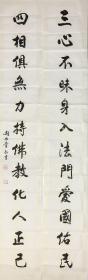 三心不昧身入法門愛國佑民
四相俱無力持佛教化人正己